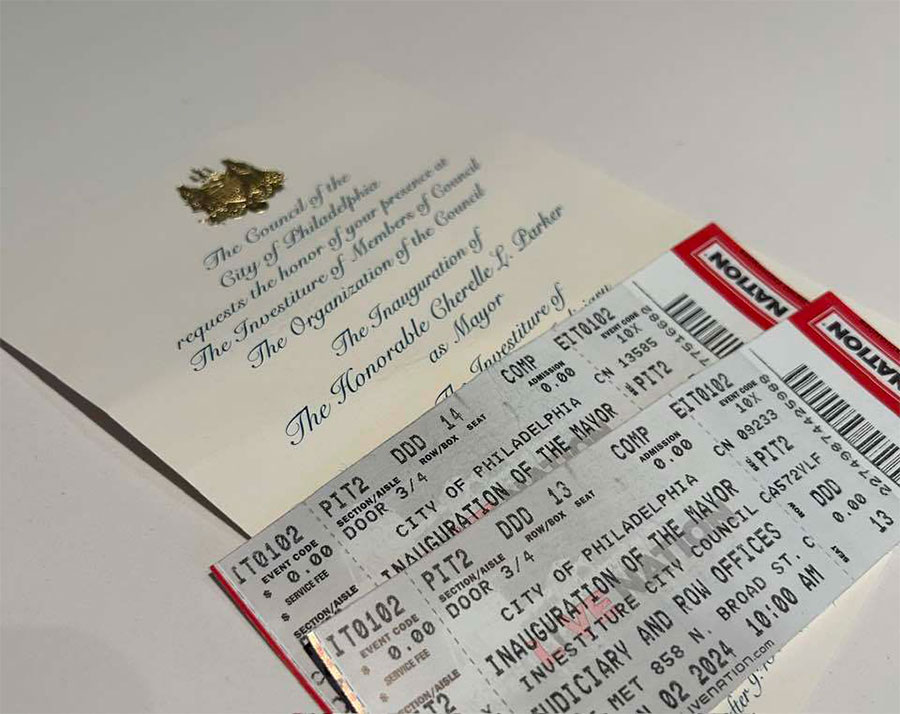 The Council of the
City of Philadelphia
requests the honor of your presence at
The Investiture of Members of Council
The Organization of the Council
The Inauguration of
The Honorable Cherelle L. Parker
as Mayor
The Investiture of
NATION
IT0102
EVENT CODE
$ 0.00
SERVICE FEE
SECTION/AISLE
PIT2 DDD 14 COMP EIT0102
SECTION/AISLE ROW/BOX SEAT ADMISSION EVENT CODE
DOOR 3/4 0.00 10X
CITY OF PHILADELPHIA CN 13585
INAUGURATION OF THE MAYOR PIT2
NATION
IT0102
EVENT CODE
$ 0.00
SERVICE FEE
SECTION/AISLE
PIT2 DDD 13 COMP EIT0102
SECTION/AISLE ROW/BOX SEAT ADMISSION EVENT CODE
DOOR 3/4 0.00 10X
CITY OF PHILADELPHIA CN 09233
INAUGURATION OF THE MAYOR PIT2
LIVE NATION
INVESTITURE CITY COUNCIL CA572VLF
JUDICIARY AND ROW OFFICES ROW DDD
MET 858 N. BROAD ST. 0.00
02 2024 10:00 AM SEAT 13